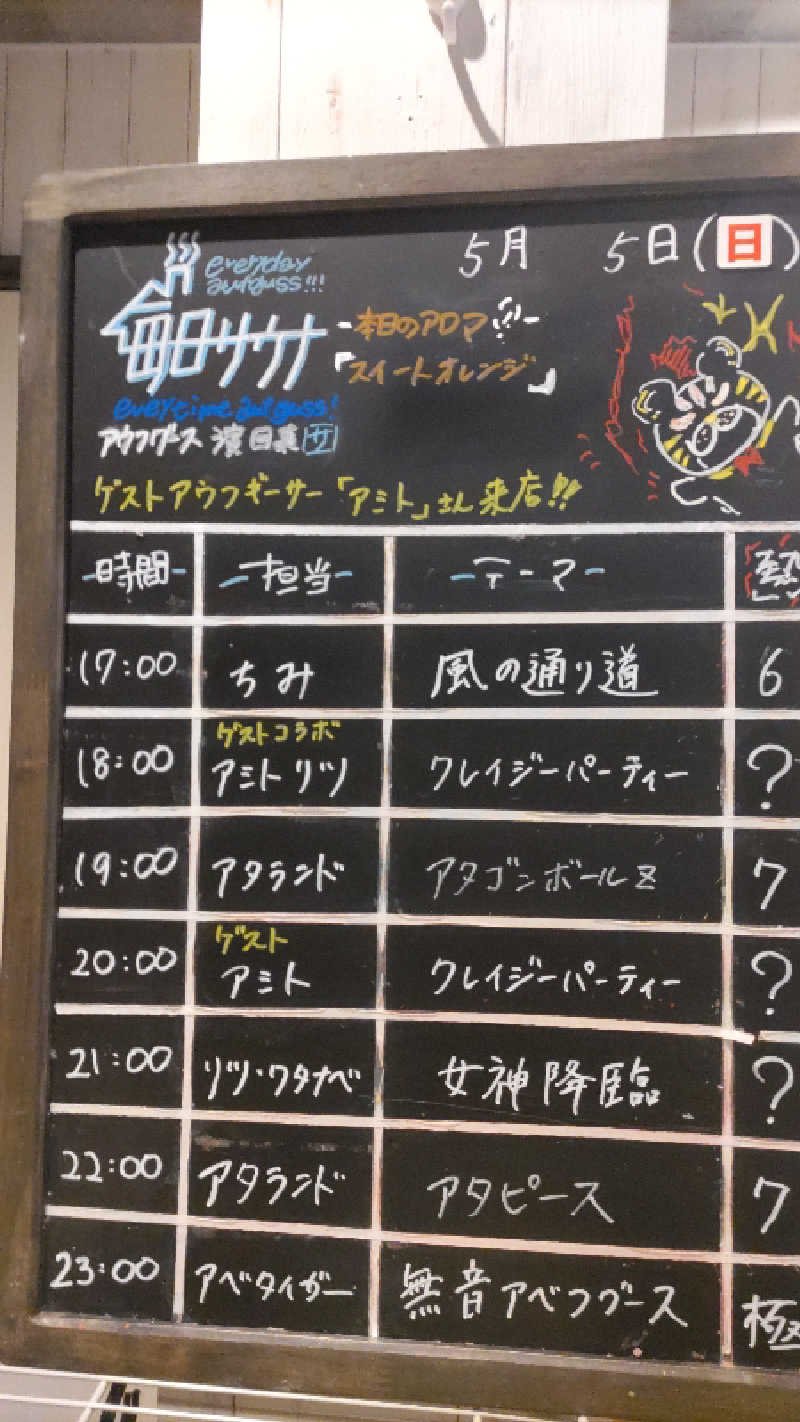 5月 5日(日)
everyday
aufguss!!!
毎日サウナ
everytime aufguss!
-本日のアロマ-
「スイートオレンジ」
アウフグース
ゲストアウフギーサー「アミト」さん来店!!
-時間- -担当- -テーマ-
17:00 ちみ 風の通り道 6
ゲストコラボ
18:00 アミトリツ クレイジーパーティー ?
19:00 アタランド アタゴンボールZ 7
ゲスト
20:00 アミト クレイジーパーティー ?
21:00 リツ・ワタナベ 女神降臨 ?
22:00 アタランド アタピース 7
23:00 アベタイガー 無音アベフグース 極